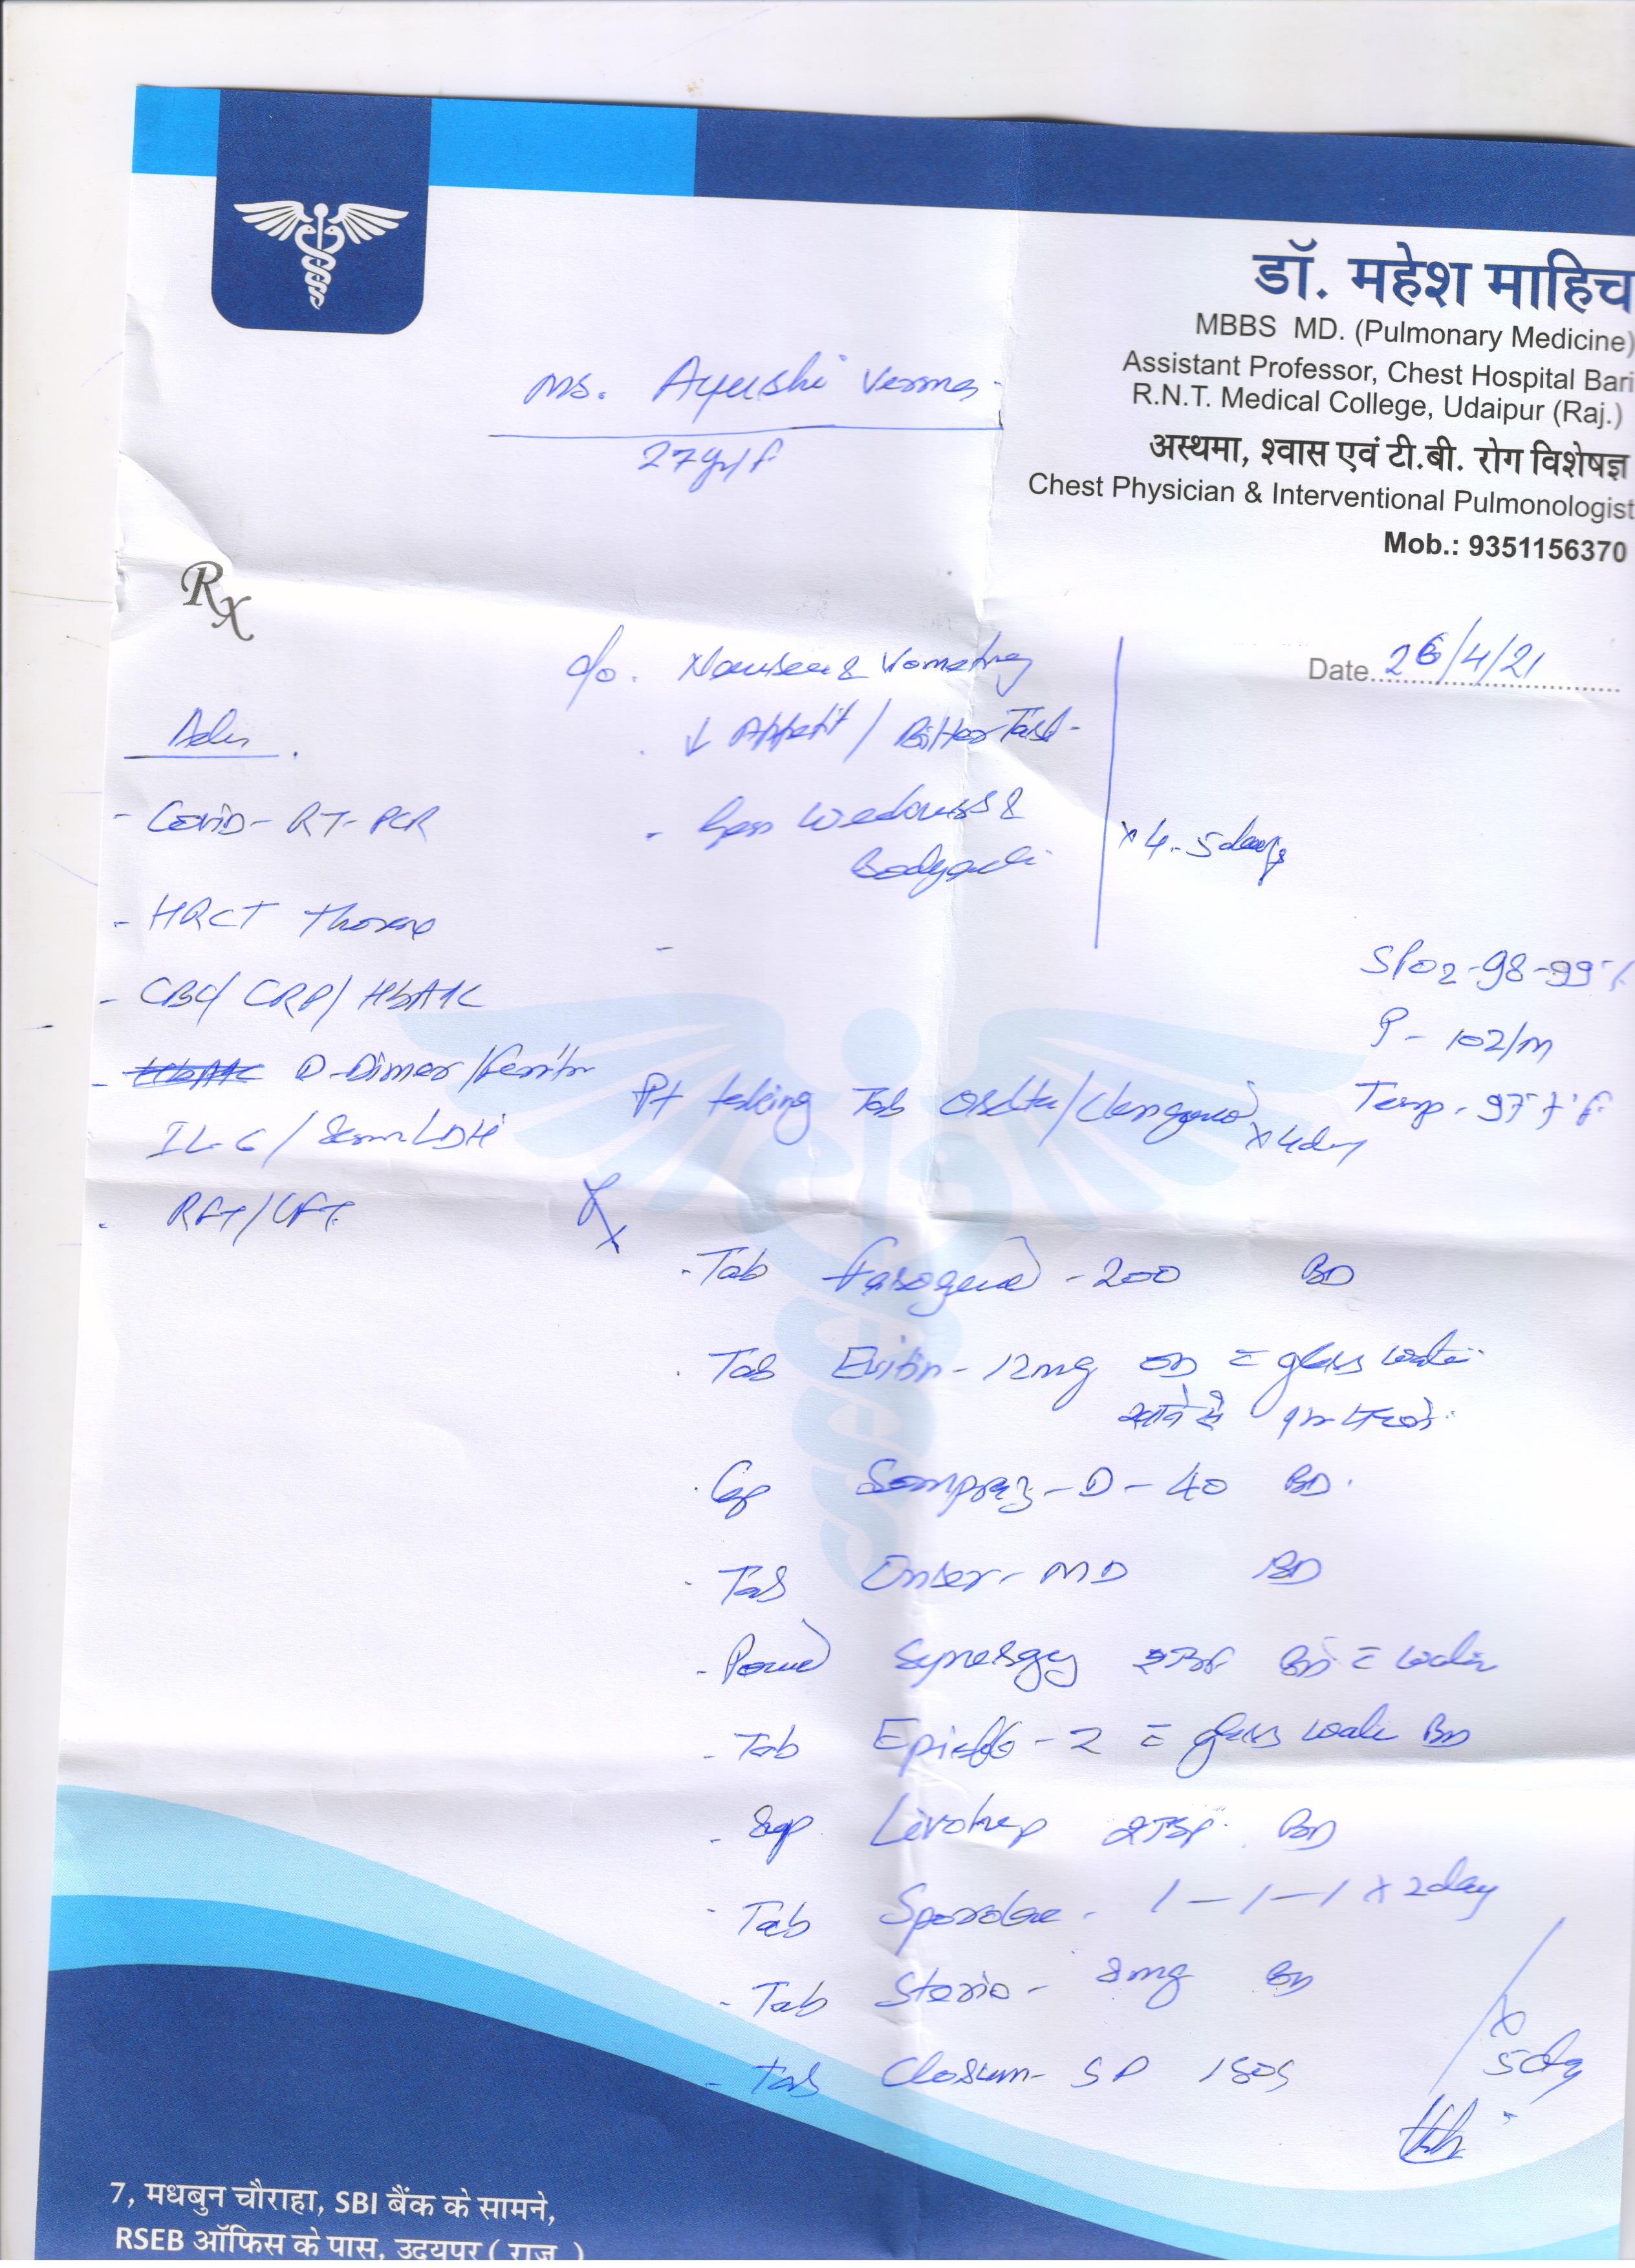 डॉ. महेश माहिच
MBBS MD. (Pulmonary Medicine)
Assistant Professor, Chest Hospital Bari
R.N.T. Medical College, Udaipur (Raj.)
अस्थमा, श्वास एवं टी.बी. रोग विशेषज्ञ
Chest Physician & Interventional Pulmonologist
Mob.: 9351156370
Ms. Ayushi Verma
27yr/f
Rx
Date 26/4/21
c/o. Nausea & Vometing
↓ Appetit / Bitter Tast
- Gen Weakness &
Bodyache
x 4-5 days
Adv.
- Covid- RT-PCR
- HRCT Thorax
- CBC/ CRP/ HbA1C
- D-Dimer/Ferritin
IL-6/ Serum LDH
- RFT/LFT
SPO2-98-99%
P- 102/m
Temp- 97.7°F
Pt taking Tab x 4day
Rx
- Tab -200 BD
- Tab 12mg OD = glass water
- Cap Sompraz-D-40 BD.
- Tab MD BD
- Powd Synergy BD = water
- Tab -2 = glass water BD
- Syp 2TSF BD
- Tab 1-1-1 x 2day
- Tab 8mg BD
- Tab SP 1SOS
x 5day
7, मधबुन चौराहा, SBI बैंक के सामने,
RSEB ऑफिस के पास, उदयपुर ( राज. )